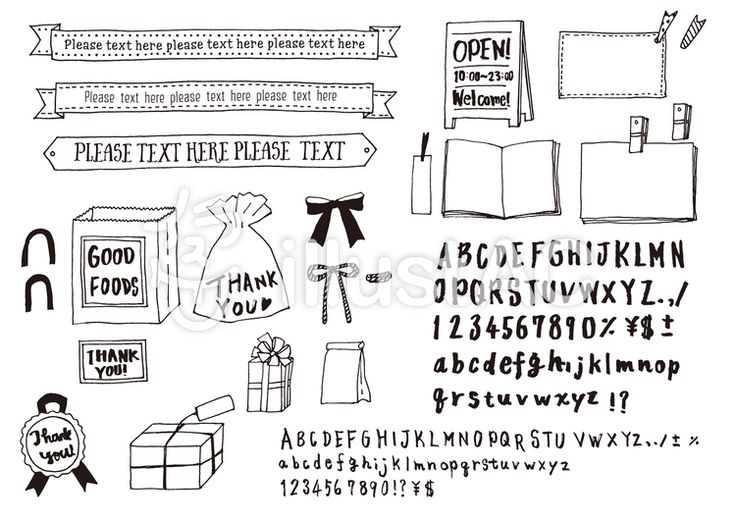 Please text here please text here please text here
Please text here please text here please text here
PLEASE TEXT HERE PLEASE TEXT
OPEN!
10:00~23:00
Welcome!
GOOD
FOODS
THANK
YOU♥
THANK
YOU!
Thank
you!
illustAC
ABCDEFGHIJKLMN
OPQRSTUVWXYZ.,/
1234567890% ¥$±
abcdefghijklmnop
qrstuvwxyz !?
ABCDEFGHIJKLMNOPQRSTUVWXYZ.,./±%
abcdefghijklmnopqrstuvwxyz
1234567890!?¥$